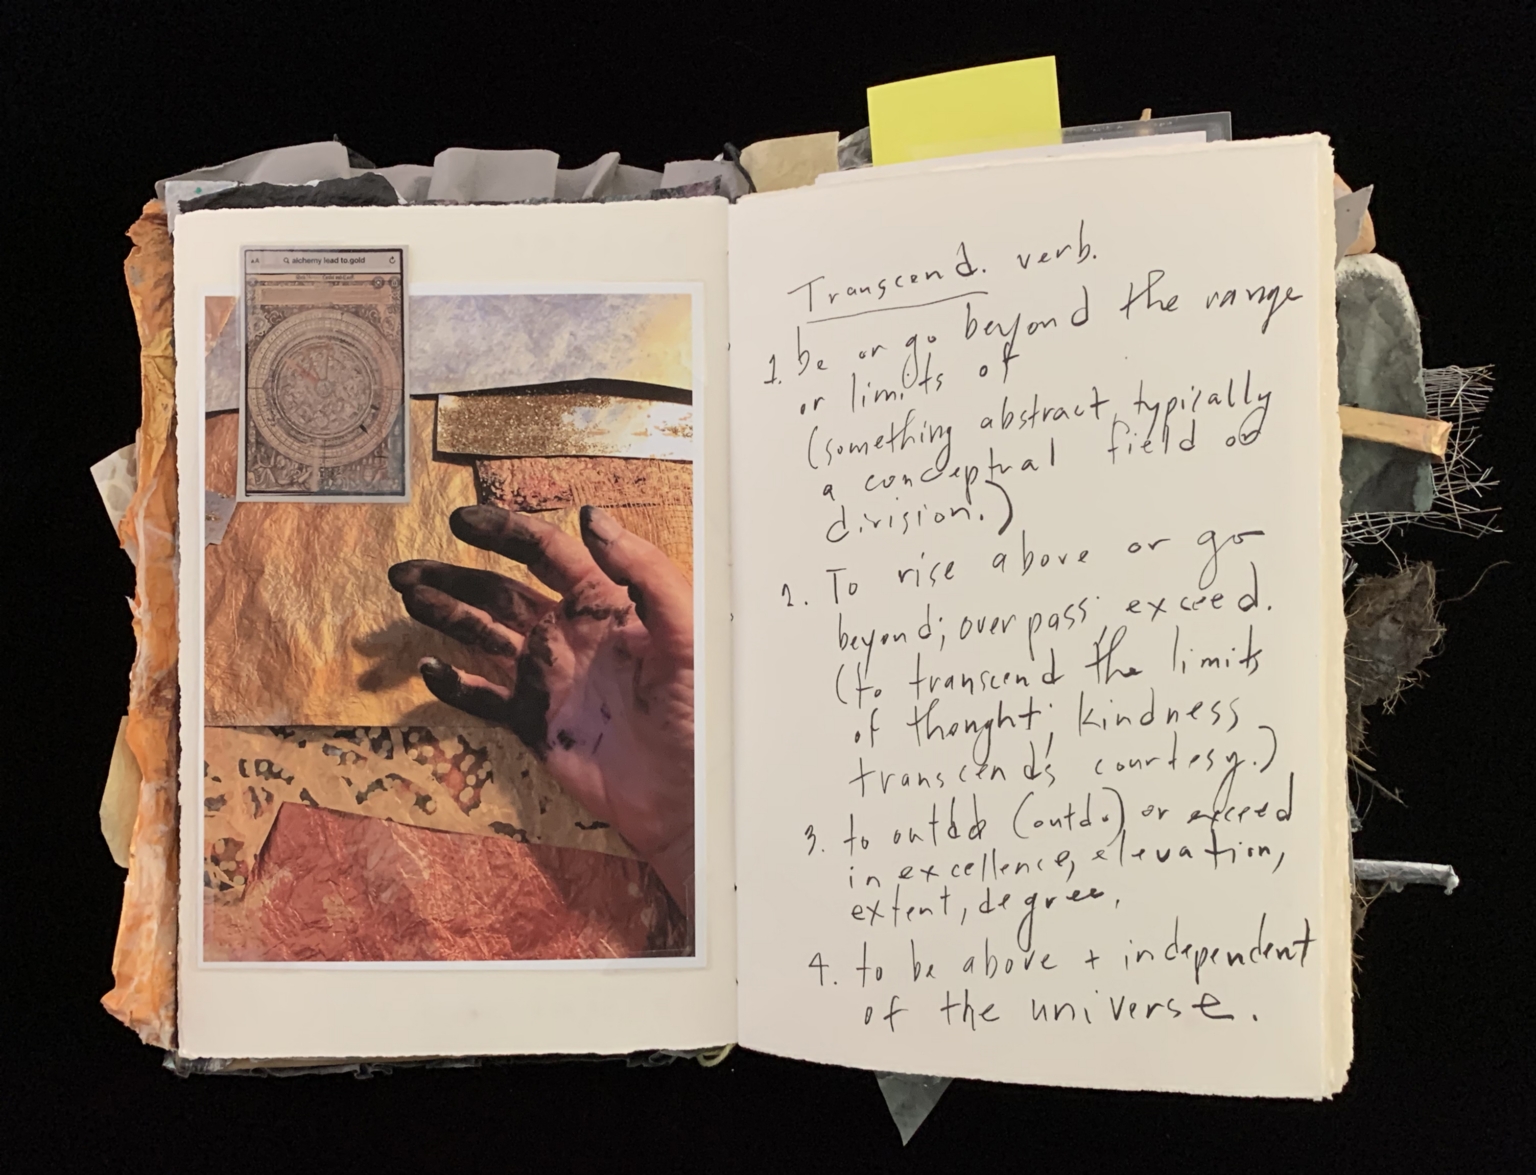 alchemy lead to.gold
Transcend. verb.
1. be or go beyond the range
or limits of
(something abstract, typically
a conceptual field or
division.)
2. To rise above or go
beyond; overpass; exceed.
(to transcend the limits
of thought; kindness
transcends courtesy.)
3. to outdo (outdo) or exceed
in excellence, elevation,
extent, degree,
4. to be above + independent
of the universe.